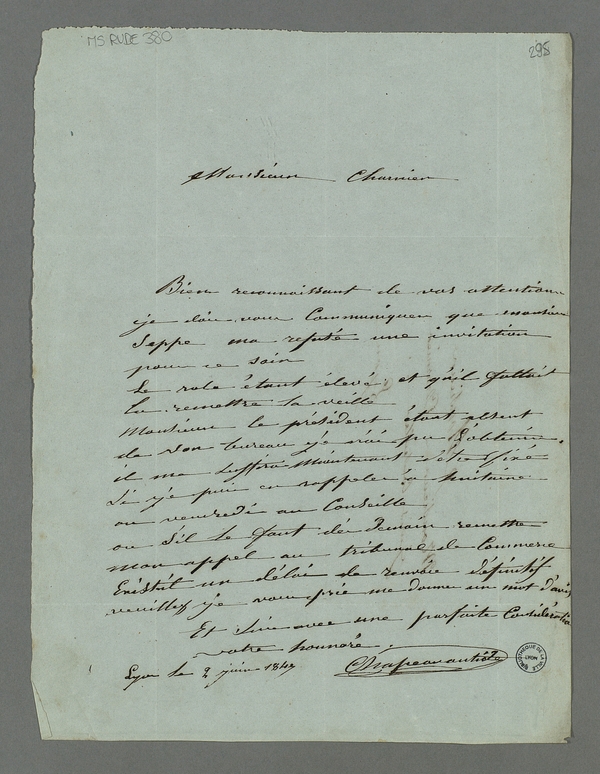 MS RUDE 380
295
Monsieur Charnier
Bien reconnaissant de vos attentions
je dois vous Communiquer que monsieur
Seppe ma refusé une invitation
pour ce soir
Le role étant élevé et qu'il fallait
la remettre la veille
Monsieur le président étant absent
de son bureau je n'ai pu l'obtenir.
il me suffira Maintenant d'être fixé
Si je puis en rappeler a huitaine
ou vendredi au Conseille
ou S'il le faut dès Demain remettre
mon appel au tribunal de Commerce
Existe un délai de renvoie définitif
veuillez je vous prie me donner un mot d'avis
Et Suis avec une parfaite Considération
votre honoré
Lyon le 2 juin 1847
BIBLIOTHEQUE DE LA VILLE LYON